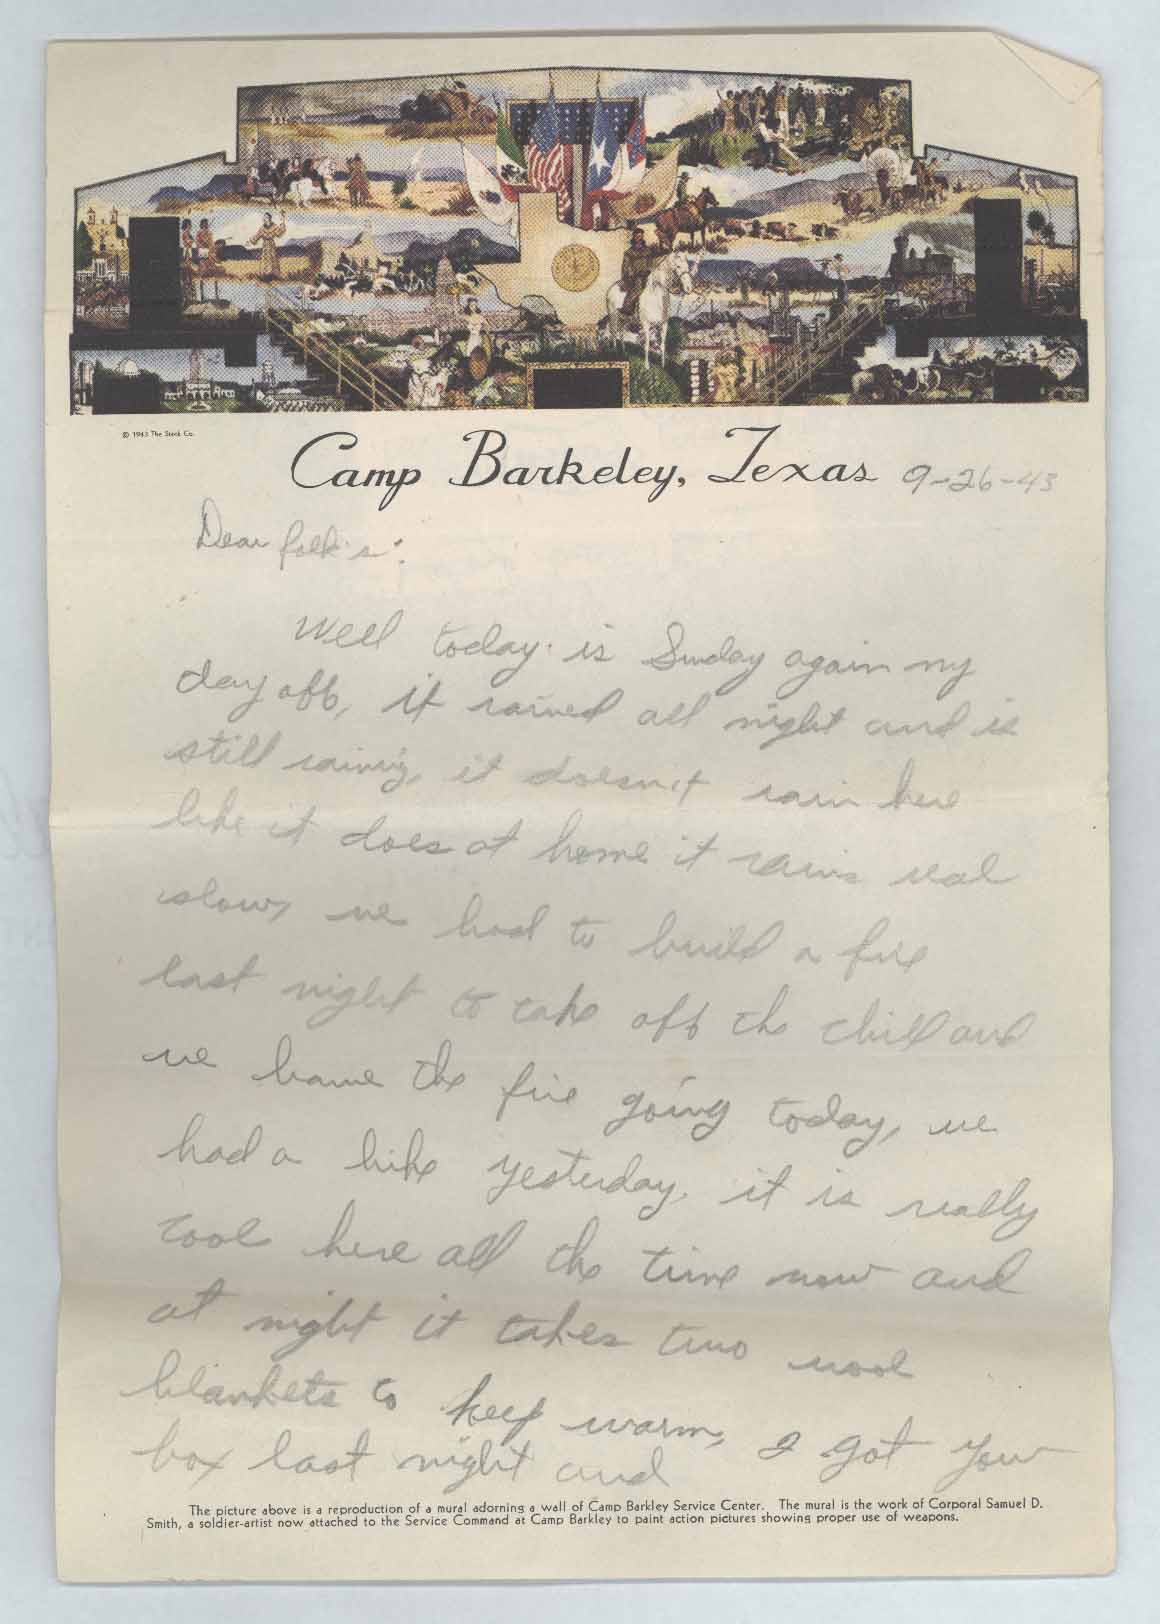 © 1943 The Stock Co.
Camp Barkeley, Texas 9-26-43
Dear folk's:
Well today is Sunday again my
day off, it rained all night and is
still raining, it doesn't rain here
like it does at home it rains real
slow, we had to build a fire
last night to take off the chill and
we have the fire going today, we
had a hike yesterday. it is really
cool here all the time now and
at night it takes two wool
blankets to keep warm, I got your
box last night and
The picture above is a reproduction of a mural adorning a wall of Camp Barkley Service Center. The mural is the work of Corporal Samuel D.
Smith, a soldier-artist now attached to the Service Command at Camp Barkley to paint action pictures showing proper use of weapons.